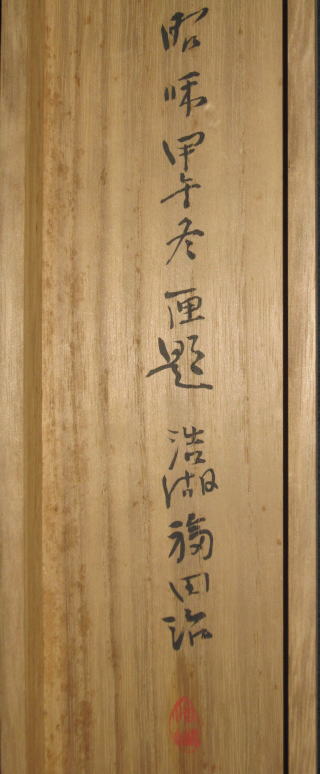 昭咊甲午冬 匣題 浩湖福田治